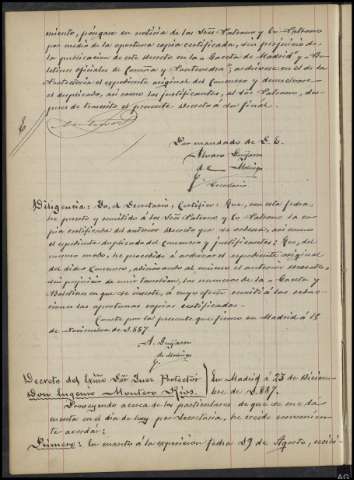 miento, póngase en noticia de los Sres Patrono y Co-Patrono
por medio de la oportuna copia certificada, sin perjuicio de
la publicacion de este decreto en la "Gaceta de Madrid" y Bo-
letines oficiales de Coruña y Pontevedra; archívese en el de la
Protectoría el expediente original del Concurso y devuélvase
el duplicado, así como los justificantes, al Sor Patrono, des-
pues de trascrito el presente Decreto á su final.
Por mandado de S. E.
Alvaro
de
Secretario
Diligencia: Yo, el Secretario, Certifico: Que, con esta fecha,
he puesto y remitido á los Sres Patrono y Co-Patrono la co-
pia certificada del anterior Decreto que se ordena, así como
el expediente duplicado del Concurso y justificantes; Que, del
mismo modo, he procedido á archivar el expediente original
del dicho Concurso, adicionando al mismo el anterior Decreto,
sin perjuicio de unir tambien, los números de la "Gaceta y
Boletines en que se inserte, á cuyo efecto remití á las redac-
ciones las oportunas copias certificadas.
Conste por la presente que firmo en Madrid á 18
de Noviembre de 1.887.
A.
de
Decreto del Exmo Sor Juez Protector
Don Eugenio Montero Rios.
En Madrid á 23 de Diciem-
bre de 1.887.
Proveyendo acerca de los particulares de que se me dá
cuenta en el dia de hoy por Secretaría, he creido convenien-
te acordar:
Primero: En cuanto á la exposicion fecha 29 de Agosto,